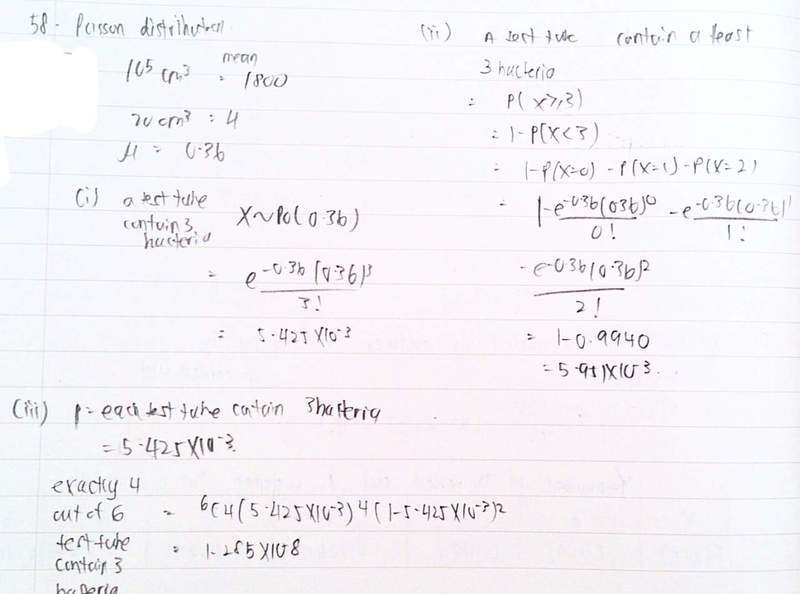 58. Poisson distribution
10⁵ cm³ = mean 1800
20 cm³ : μ
μ = 0.36
(i) a test tube contain 3 bacteria
X~Po(0.36)
= e^-0.36 (0.36)³ / 3!
= 5.425×10⁻³
(ii) A test tube contain a least
3 bacteria
= P(X≥3)
= 1-P(X<3)
= 1-P(X=0) -P(X=1)-P(X=2)
= 1-e^-0.36(0.36)⁰ / 0! - e^-0.36(0.36)¹ / 1!
- e^-0.36(0.36)² / 2!
= 1-0.9940
= 5.951×10⁻³.
(iii) p = each test tube contain 3 bacteria
= 5.425×10⁻³.
exactly 4
out of 6 = ⁶C4 (5.425×10⁻³)⁴ (1-5.425×10⁻³)²
test tube = 1.285×10⁻⁸
contain 3
bacteria